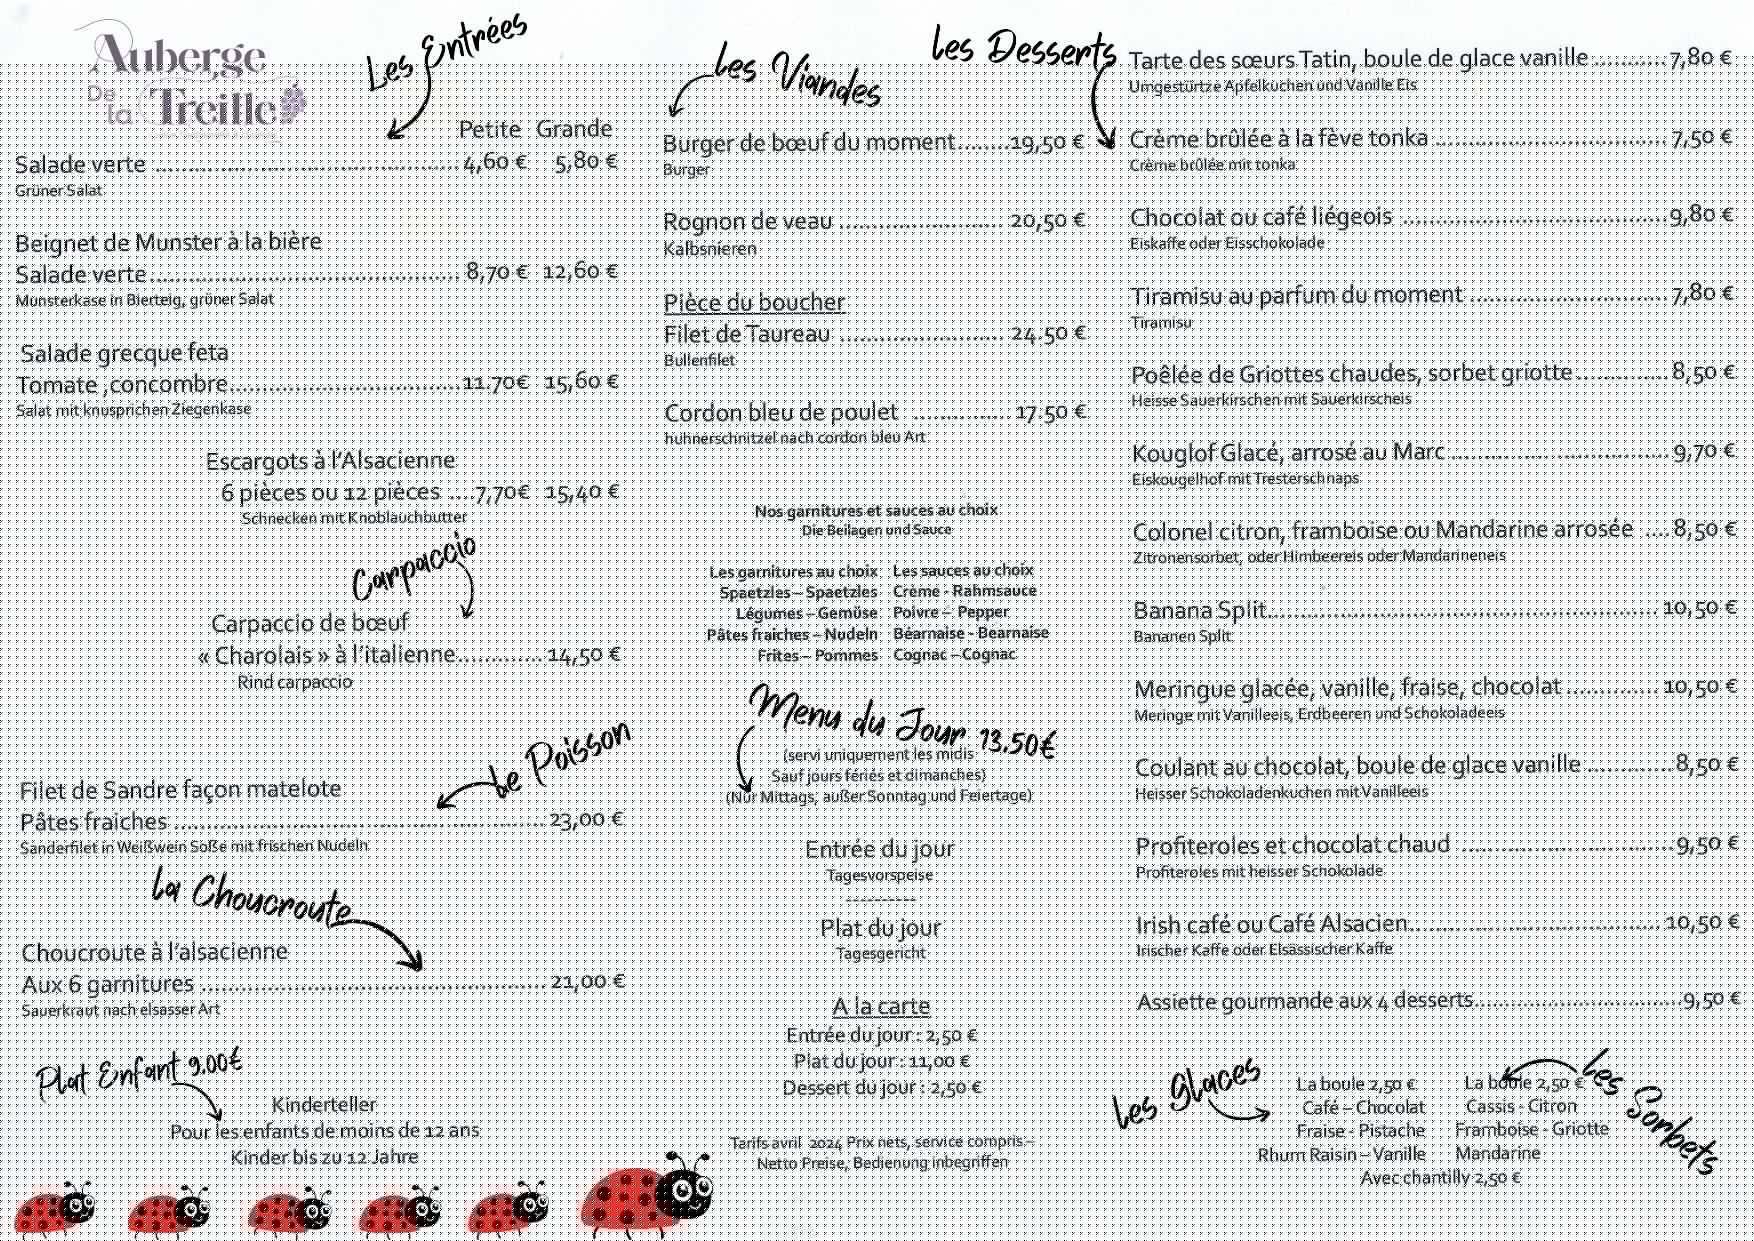 Auberge
De la Treille
Les Entrées
Petite Grande
Salade verte ................ 4,60 € 5,80 €
Grüner Salat
Beignet de Munster à la bière
Salade verte................ 8,70 € 12,60 €
Munsterkase in Bierteig, grüner Salat
Salade grecque feta
Tomate ,concombre................11.70€ 15,60 €
Salat mit knusprichen Ziegenkase
Escargots à l'Alsacienne
6 pièces ou 12 pièces ....7,70€ 15,40 €
Schnecken mit Knoblauchbutter
Carpaccio
Carpaccio de bœuf
« Charolais » à l'italienne............. 14,50 €
Rind carpaccio
Le Poisson
Filet de Sandre façon matelote
Pâtes fraiches ................ 23,00 €
Sanderfilet in Weißwein Soße mit frischen Nudeln
La Choucroute
Choucroute à l'alsacienne
Aux 6 garnitures ................ 21,00 €
Sauerkraut nach elsasser Art
Plat Enfant 9.00€
Kinderteller
Pour les enfants de moins de 12 ans
Kinder bis zu 12 Jahre
Les Viandes
Burger de bœuf du moment........19,50 €
Burger
Rognon de veau ................ 20,50 €
Kalbsnieren
Pièce du boucher
Filet de Taureau ................ 24.50 €
Bullenfilet
Cordon bleu de poulet ............... 17.50 €
huhnerschnitzel nach cordon bleu Art
Nos garnitures et sauces au choix
Die Beilagen und Sauce
Les garnitures au choix Les sauces au choix
Spaetzles – Spaetzles Crème - Rahmsauce
Légumes – Gemüse Poivre – Pepper
Pâtes fraiches – Nudeln Béarnaise - Bearnaise
Frites – Pommes Cognac – Cognac
Menu du Jour 13.50€
(servi uniquement les midis
Sauf jours fériés et dimanches)
(Nur Mittags, außer Sonntag und Feiertage)
Entrée du jour
Tagesvorspeise
----------
Plat du jour
Tagesgericht
A la carte
Entrée du jour : 2,50 €
Plat du jour : 11,00 €
Dessert du jour : 2,50 €
Tarifs avril 2024 Prix nets, service compris –
Netto Preise, Bedienung inbegriffen
Les Desserts
Tarte des sœurs Tatin, boule de glace vanille ...........7,80 €
Umgestürtze Apfelkuchen und Vanille Eis
Crème brûlée à la fève tonka ................ 7,50 €
Crème brûlée mit tonka
Chocolat ou café liégeois ................9,80 €
Eiskaffe oder Eisschokolade
Tiramisu au parfum du moment ................ 7,80 €
Tiramisu
Poêlée de Griottes chaudes, sorbet griotte.............. 8,50 €
Heisse Sauerkirschen mit Sauerkirscheis
Kouglof Glacé, arrosé au Marc ................ 9,70 €
Eiskougelhof mit Tresterschnaps
Colonel citron, framboise ou Mandarine arrosée ....8,50 €
Zitronensorbet, oder Himbeereis oder Mandarineneis
Banana Split................ 10,50 €
Bananen Split
Meringue glacée, vanille, fraise, chocolat .............. 10,50 €
Meringe mit Vanilleeis, Erdbeeren und Schokoladeeis
Coulant au chocolat, boule de glace vanille .............8,50 €
Heisser Schokoladenkuchen mit Vanilleeis
Profiteroles et chocolat chaud ................9,50 €
Profiteroles mit heisser Schokolade
Irish café ou Café Alsacien................ 10,50 €
Irischer Kaffe oder Elsässischer Kaffe
Assiette gourmande aux 4 desserts................9,50 €
Les Glaces
La boule 2,50 €
Café – Chocolat
Fraise - Pistache
Rhum Raisin – Vanille
Les Sorbets
La boule 2,50 €
Cassis - Citron
Framboise - Griotte
Mandarine
Avec chantilly 2,50 €